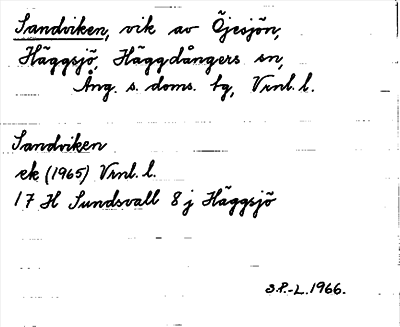 Sandviken, vik av Öjesjön,
Häggsjö, Häggdångers sn,
Ång. s. doms. tg, Vrnl. l.
Sandviken
ek (1965) Vrnl. l.
17 H Sundsvall 8 j Häggsjö
S.P.-L. 1966.